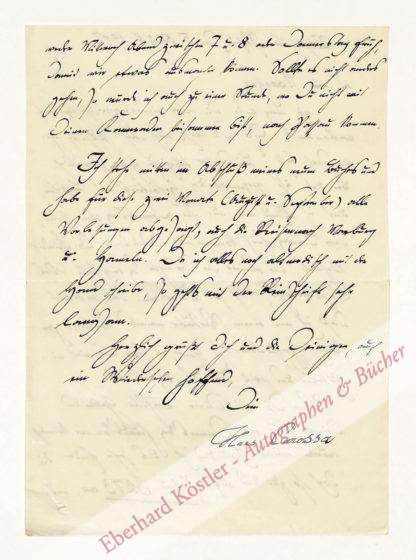 oder Mittwoch Abend zwischen 7 u. 8 oder Donnerstag früh,
damit wir etwas ausmachen können. Sollte es nicht anders
gehen, so würde ich auch zu einer Stunde, wo Du nicht mit
Deinen Kameraden beisammen bist, nach Passau kommen.
Ich stehe mitten im Abschluß meines neuen Buches und
habe für diese zwei Monate (August u. September) alle
Vorlesungen abgesagt, auch die Reisen nach Marburg
u. Hameln. Da ich alles noch altmodisch mit der
Hand schreibe, so geht's mit der Reinschrift sehr
langsam.
Herzlich grüßt Dich und die Deinigen, auf
ein Wiedersehen hoffend,
Dein
Hans Carossa
Eberhard Köstler - Autographen & Bücher